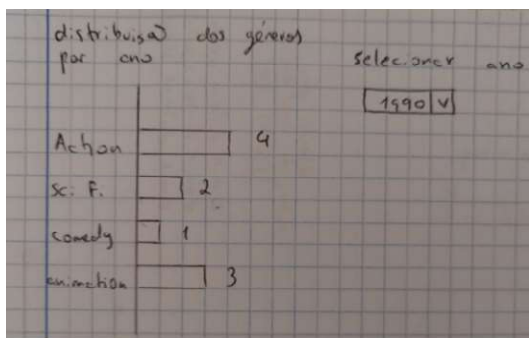 distribuisão dos géneros
por ano
selecionar ano
1990 v
Action 4
sci F. 2
comedy 1
animation 3